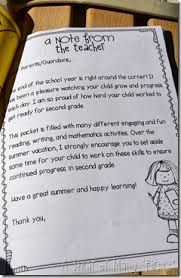 a note from
the teacher
Parents/Guardians,
The end of the school year is right around the corner! I
has been a pleasure watching your child grow and progress
each day. I am so proud of how hard your child worked to
get ready for second grade.
This packet is filled with many different engaging and fun
reading, writing, and mathematics activities. Over the
summer vacation, I strongly encourage you to set aside
some time for your child to work on these skills to ensure
continued progress in second grade.
Have a great summer and happy learning!
Thank you,